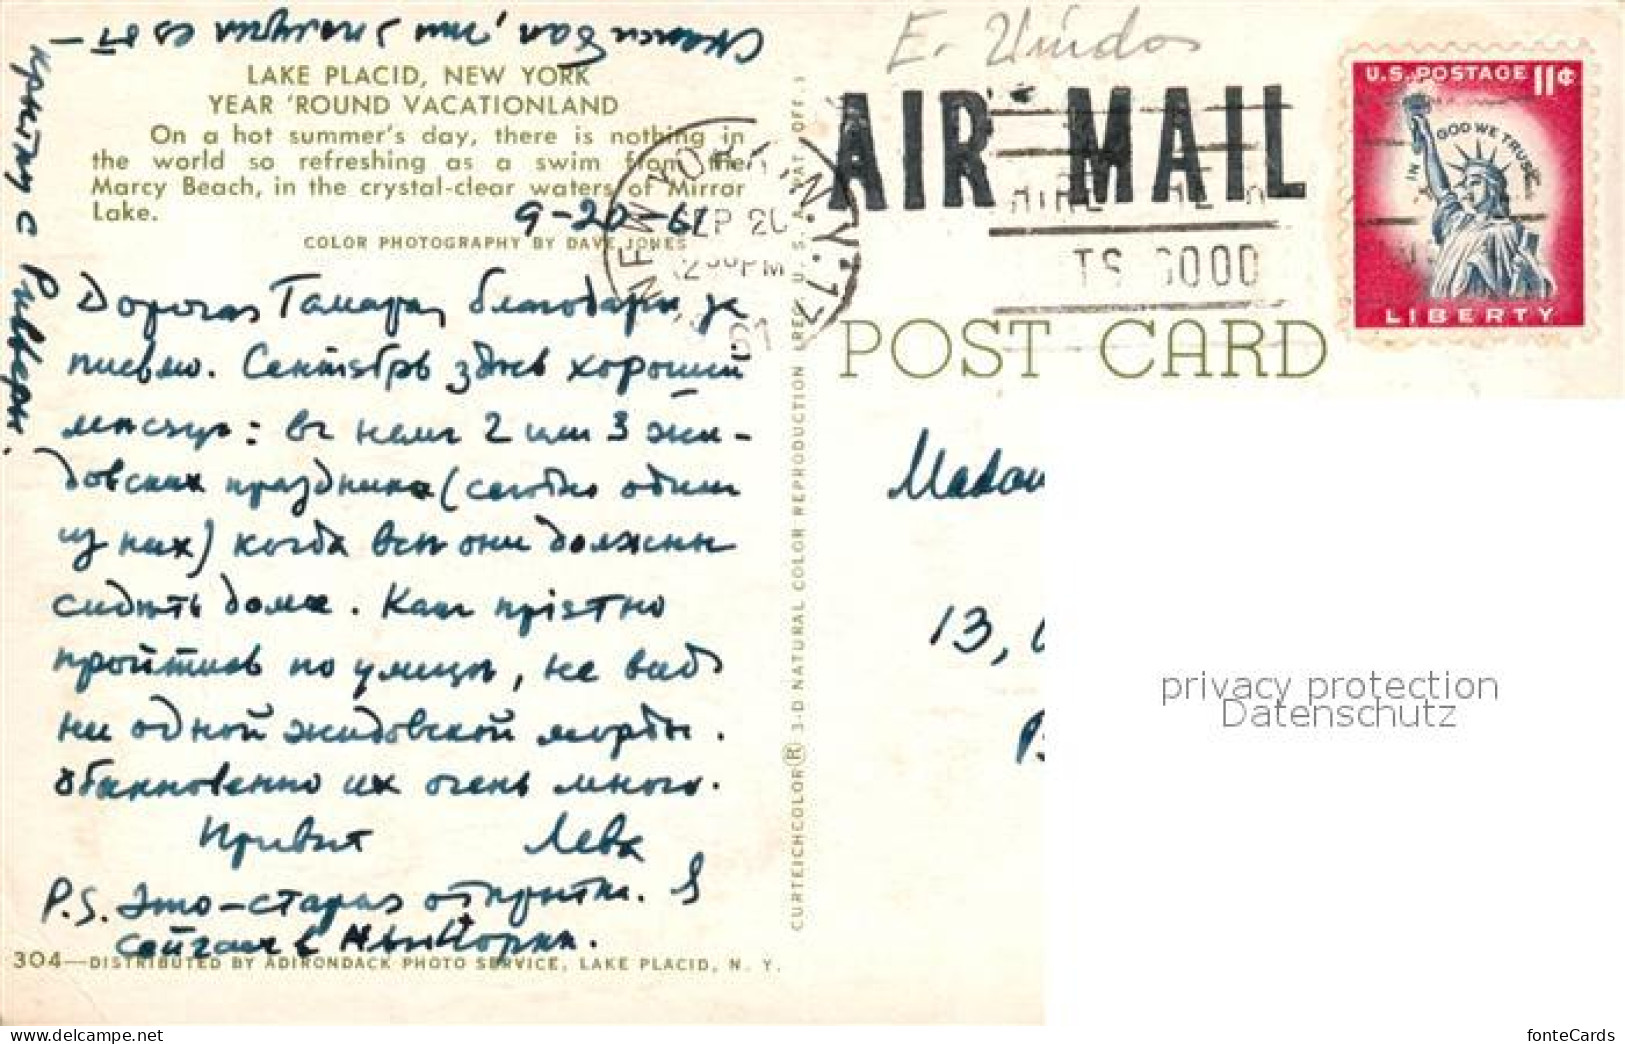 Скажи Вал, что я получил ее от-
крытку с Ривери.
LAKE PLACID, NEW YORK
YEAR 'ROUND VACATIONLAND
On a hot summer's day, there is nothing in
the world so refreshing as a swim from the
Marcy Beach, in the crystal-clear waters of Mirror
Lake.
COLOR PHOTOGRAPHY BY DAVE JONES
9-20-61
Дорогая Тамара, благодарю за
письмо. Сентябрь здѣсь хороший
мѣсяцъ: въ немъ 2 или 3 жи-
довских праздника (сегодня один
из них) когда всѣ они должны
сидѣть дома. Какъ прiятно
пройтись по улицѣ, не видя
ни одной жидовской морды.
Обыкновенно их очень много.
Привѣт Лева
P.S. Это-старая открытка. Я
сейчасъ в Нью Йоркѣ.
304—DISTRIBUTED BY ADIRONDACK PHOTO SERVICE, LAKE PLACID, N. Y.
CURTEICHCOLOR ® 3-D NATURAL COLOR REPRODUCTION (REG. U.S.A. PAT. OFF.)
NEW YORK, N.Y. 17
SEP 20
2 30 PM
61
E. Uindos
AIR MAIL
ITS GOOD
U.S. POSTAGE 11¢
IN GOD WE TRUST
LIBERTY
POST CARD
Madam
13,
privacy protection
Datenschutz
www.ansichtskarten-center.de
fonteCards